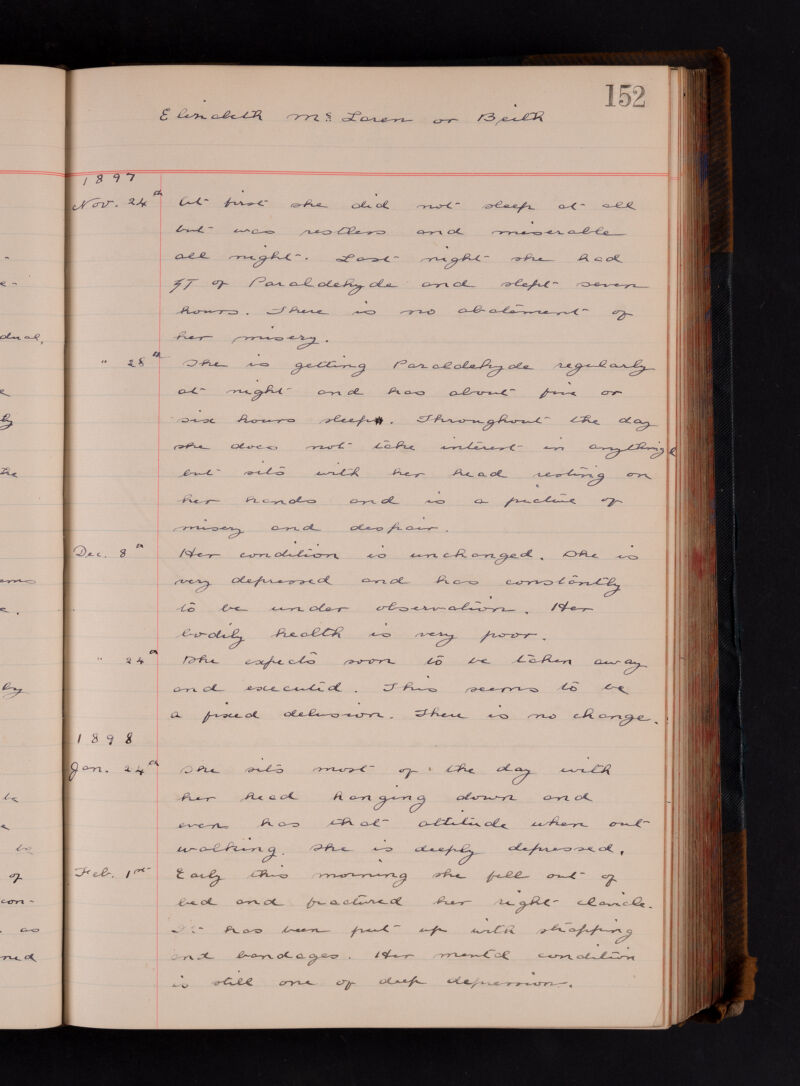 152
Elizabeth McLaren or Beith
1897
Nov. 24th At first she did not sleep at all
but was restless and miserable
all night. Last night she had
of Paraldehyde and slept seven
hours. There is no abatement of
her misery.
" 28th She is getting Paraldehyde regularly
at night and has about five or
six hours sleep. Throughout the day
she does not take interest in anything
but sits with her head resting on
her hands and is a picture of
misery and despair.
Dec. 8th Her condition is unchanged. She is
very depressed and has constantly
to be under observation. Her
bodily health is very poor.
" 24th She expects soon to be taken away
and executed. This seems to be
a fixed delusion. There is no change.
1898
Jan. 24th She sits most of the day with
her head hanging down and
even has that attitude when out
walking. She is deeply depressed.
Feb. 1st Early this morning she fell out of
bed and fractured her right clavicle.
It has been put up with strapping
and bandages. Her mental condition
is still one of deep depression.